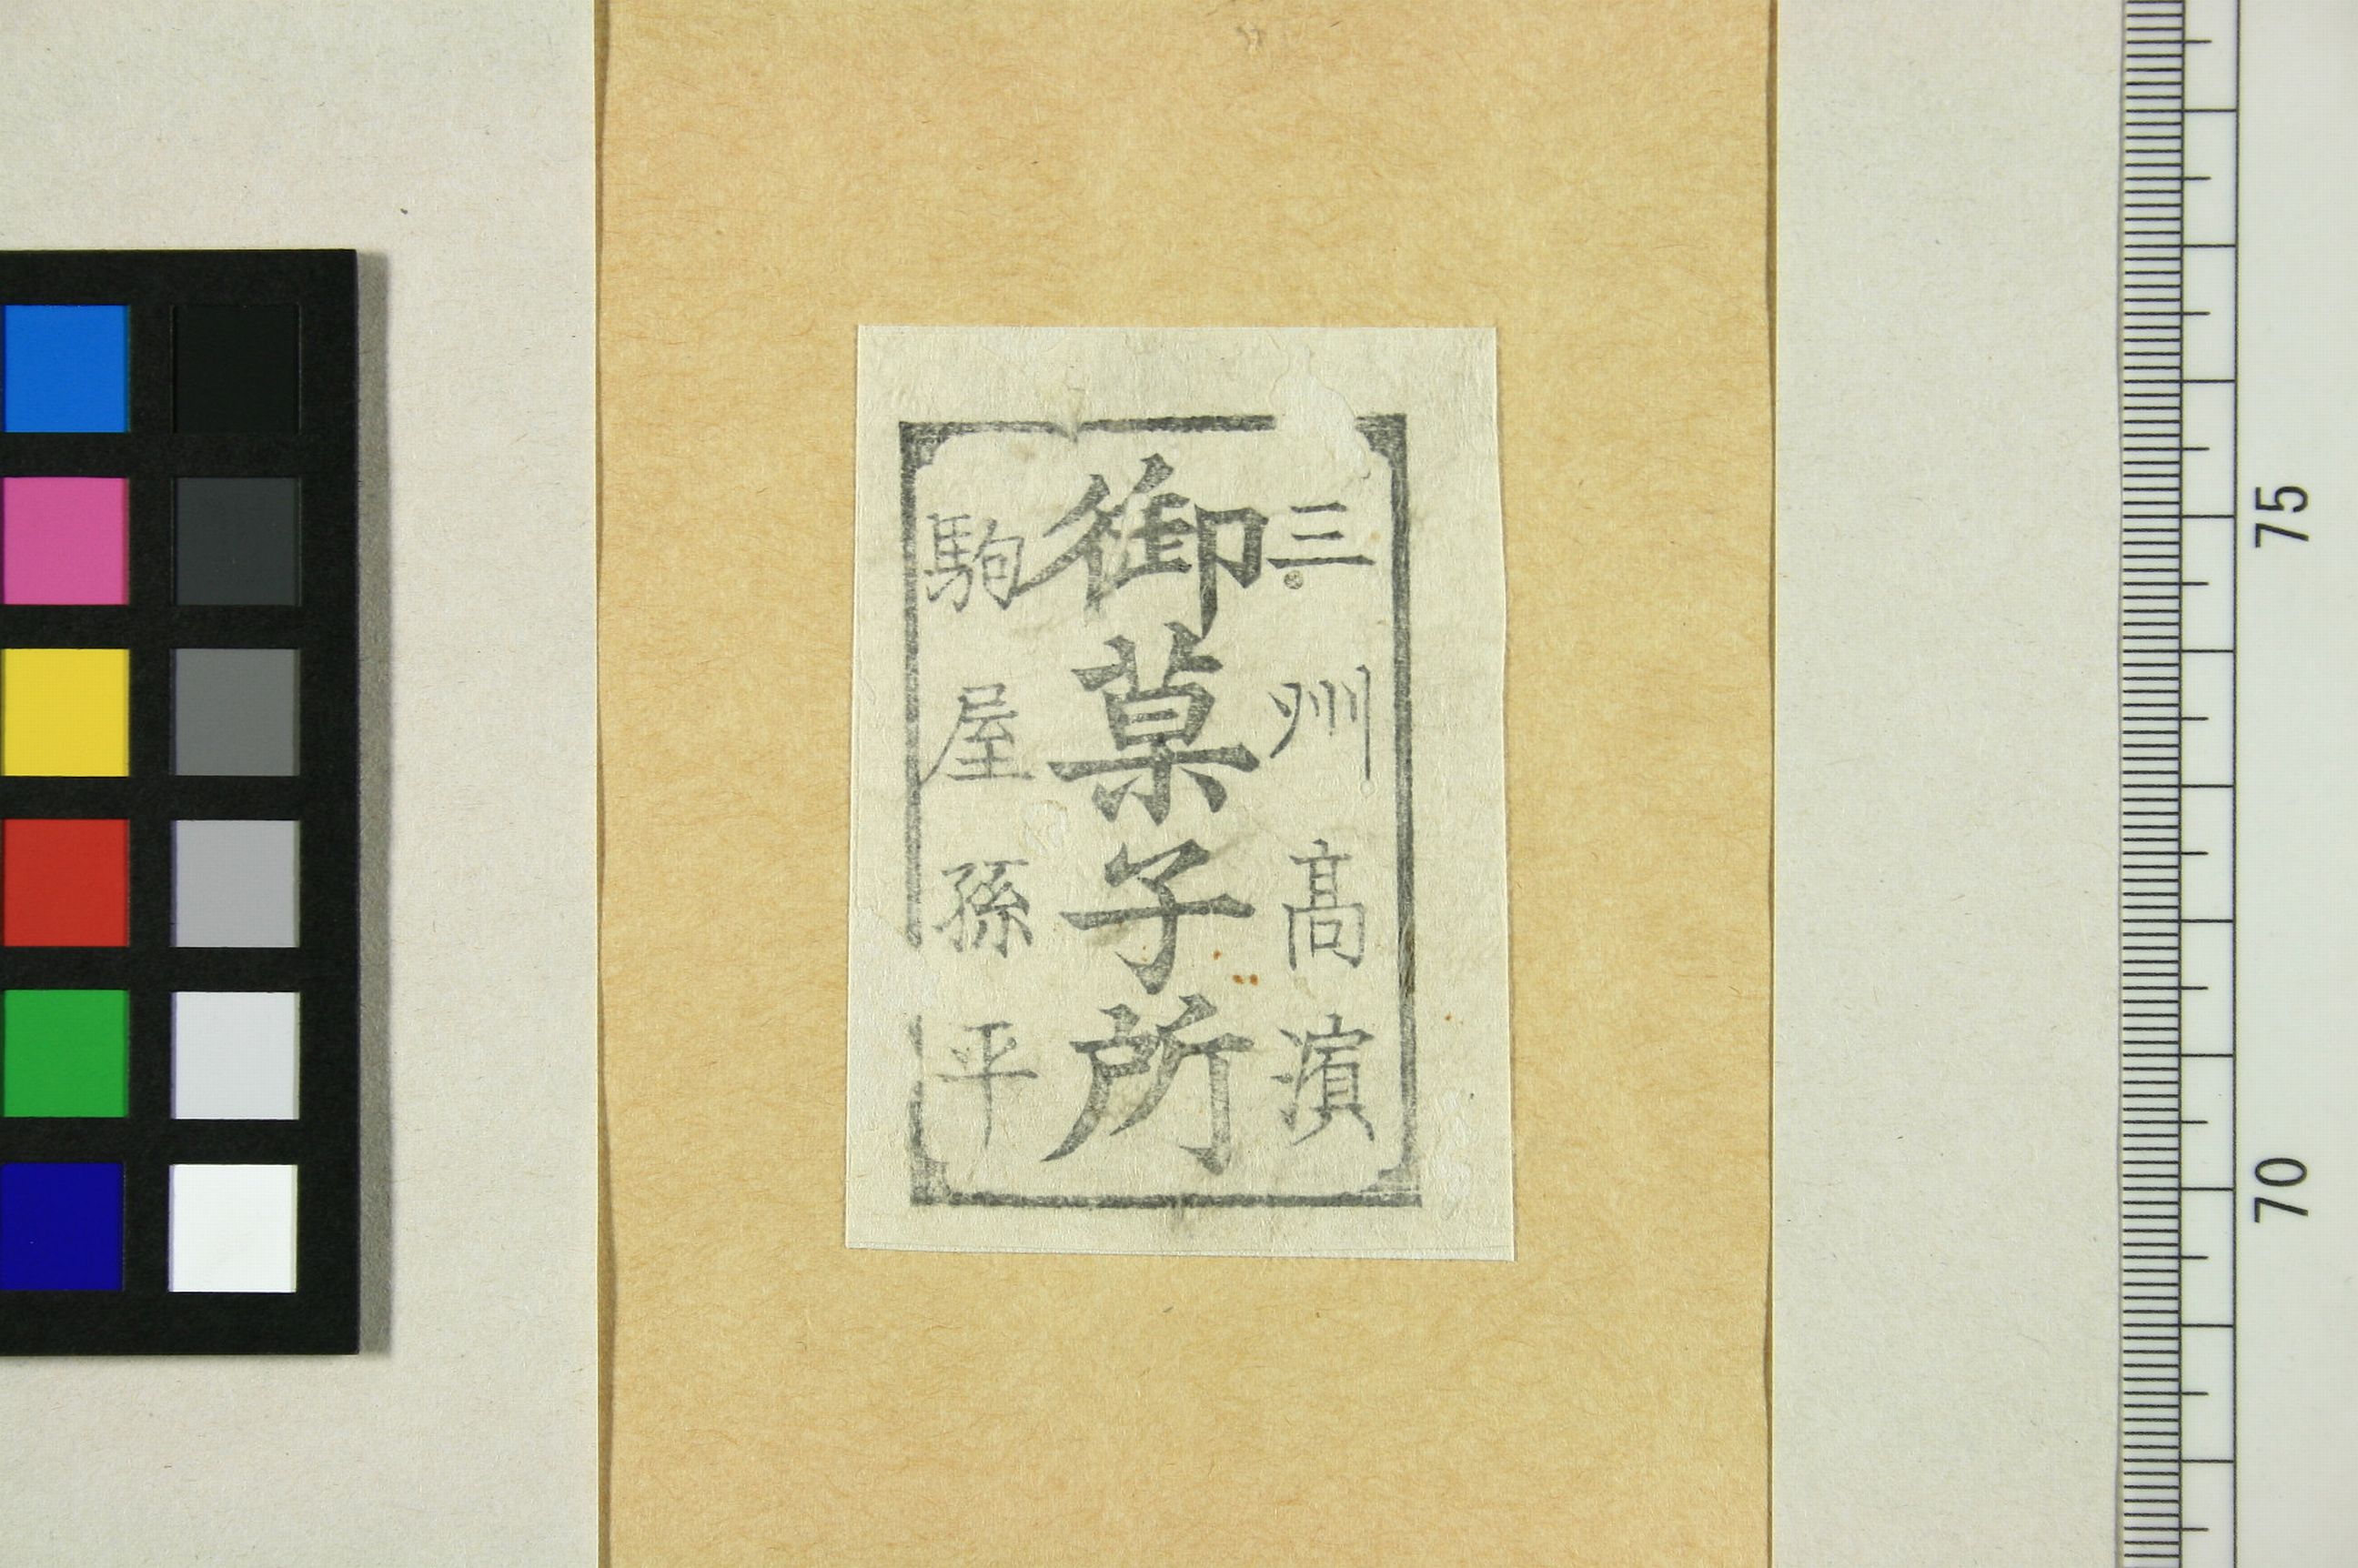 三州高濱
御菓子所
駒屋孫平
75
70